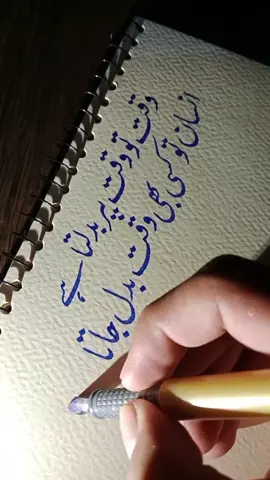 وقت تو وقت پر بدلتا ہے
انسان تو کسی بھی وقت بدل جاتا